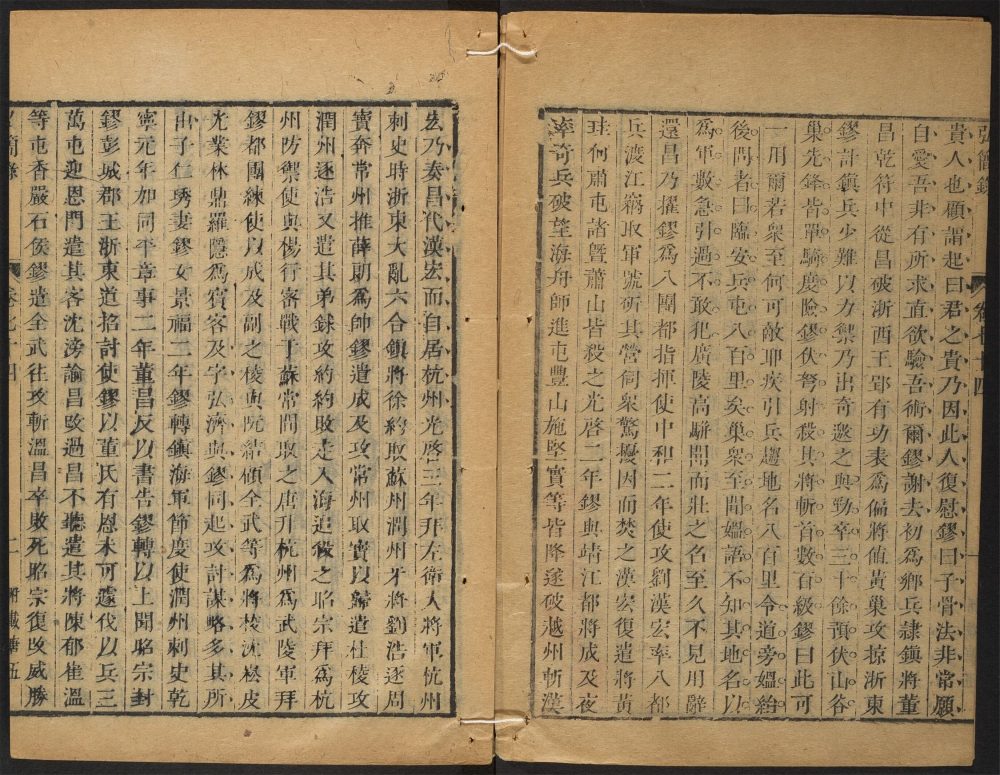 弘簡錄 卷七十四
貴人也顧謂起曰君之貴乃因此人復慰鏐曰子骨法非常願
自愛吾非有所求直欲驗吾術爾鏐謝去初為鄉兵隸鎮將董
昌乾符中從昌破浙西王郢有功表為偏將值黃巢攻掠浙東
鏐計鎮兵少難以力禦乃出奇邀之與勁卒二十餘預伏山谷
巢先鋒皆單騎度險鏐伏弩射殺其將斬首數百級鏐曰此可
一用爾若眾至何可敵耶疾引兵趨地名八百里令道旁媼紿
後問者曰臨安兵屯八百里矣巢眾至聞媼語不知其地名以
為軍數急引過不敢犯廣陵高駢聞而壯之名至久不見用辭
還昌乃擢鏐為八團都指揮使中和二年使攻劉漢宏率八都
兵渡江竊取軍號斫其營伺眾驚擾因而焚之漢宏復遣將黃
珪何肅屯諸暨蕭山皆殺之光啓二年鏐與靖江都將成及夜
率奇兵破望海舟師進屯豐山施堅實等皆降遂破越州斬漢
宏乃奏昌代漢宏而自居杭州光啓三年拜左衛大將軍杭州
刺史時浙東大亂六合鎮將徐約取蘇州潤州牙將劉浩逐周
寶奔常州推薛朗為帥鏐遣成及攻常州取寶以歸遣杜稜攻
潤州逐浩又遣其弟銶攻約約敗走入海追殺之昭宗拜為杭
州防禦使與楊行密戰于蘇常間取之唐升杭州為武陵軍拜
鏐都團練使以成及副之稜與阮結顧全武等為將校沈崧皮
光業林鼎羅隱為賓客及字弘濟與鏐同起攻討謀略多其所
出子仁琇妻鏐女景福二年鏐轉鎮海軍節度使潤州刺史乾
寧元年加同平章事二年董昌反以書告鏐轉以上聞昭宗封
鏐彭城郡王浙東道招討使鏐以董氏有恩未可遽伐以兵三
萬屯迎恩門遣其客沈滂諭昌改過昌不聽遣其將陳郁崔溫
等屯香嚴石侯鏐遣全武往攻斬溫昌卒敗死昭宗復改威勝
簡錄 卷七十四 二